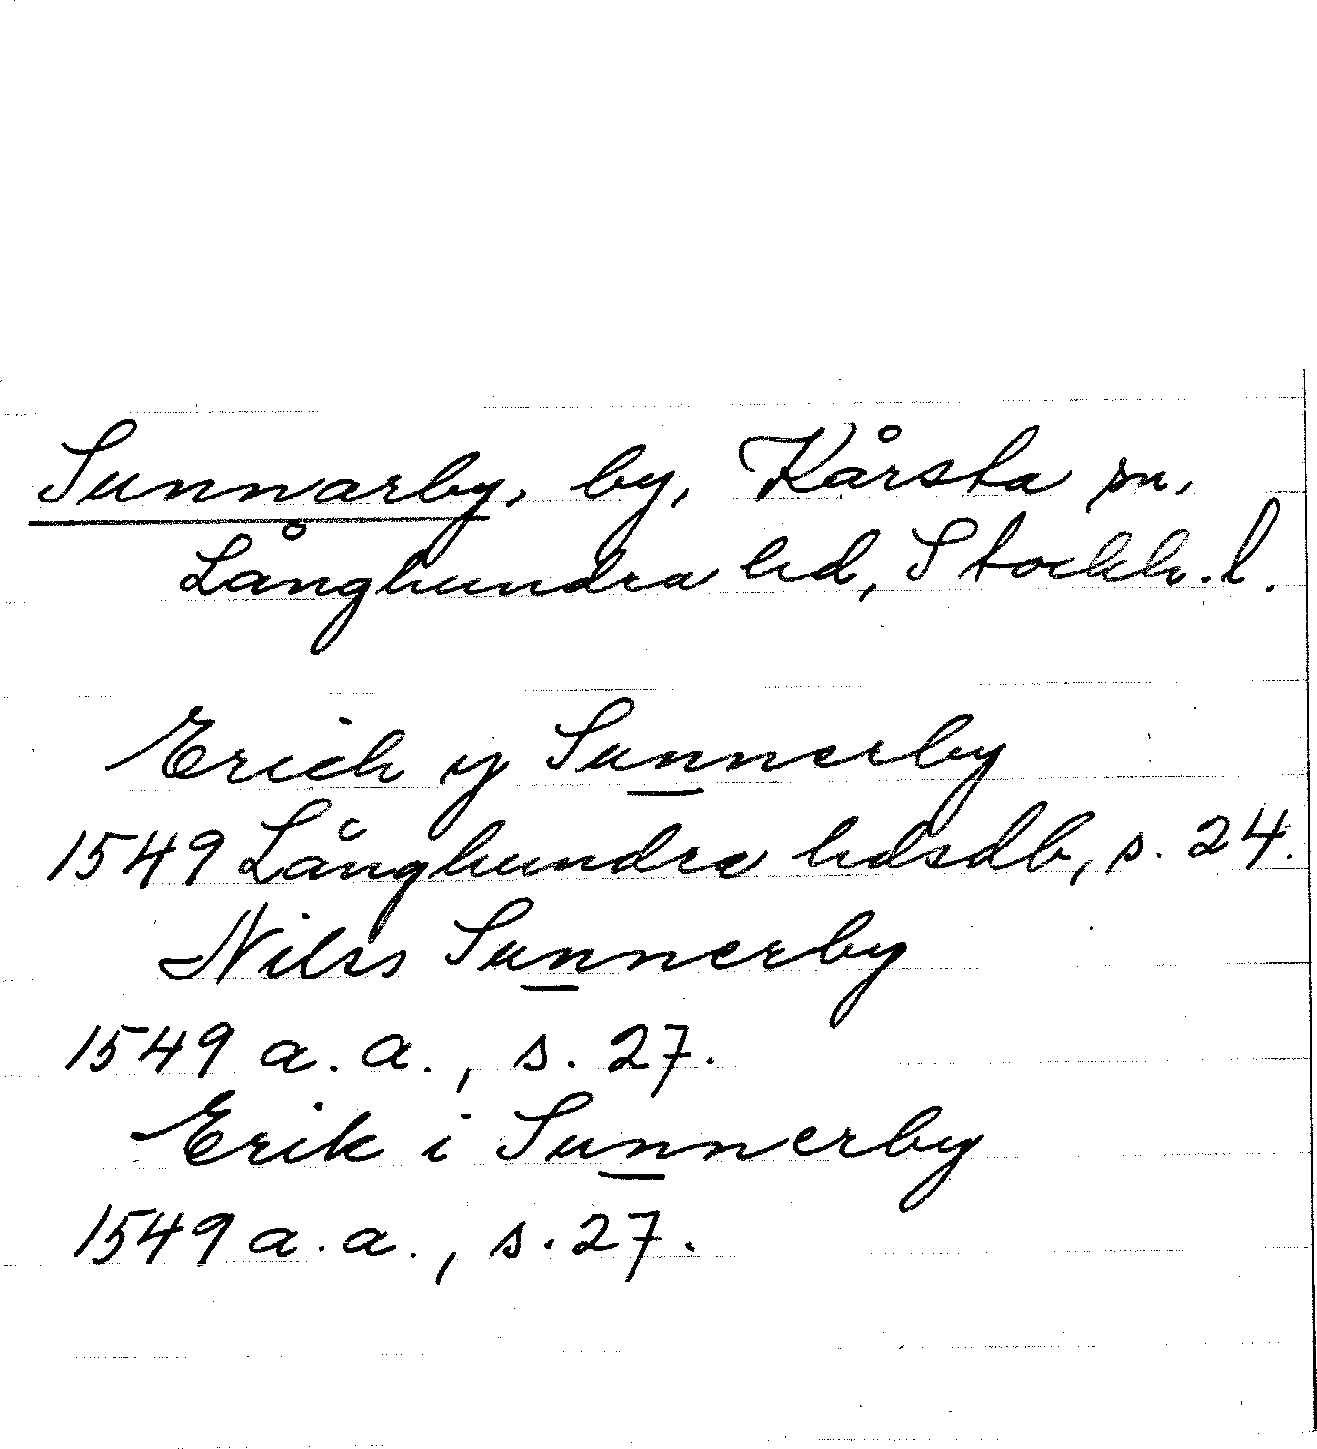 Sunnarby, by, Kårsta sn,
Långhundra hd, Stockh. l.
Erich y Sunnerby
1549 Långhundra hdsdb, s. 24.
Nilss Sunnerby
1549 a. a., s. 27.
Erik i Sunnerby
1549 a. a., s. 27.